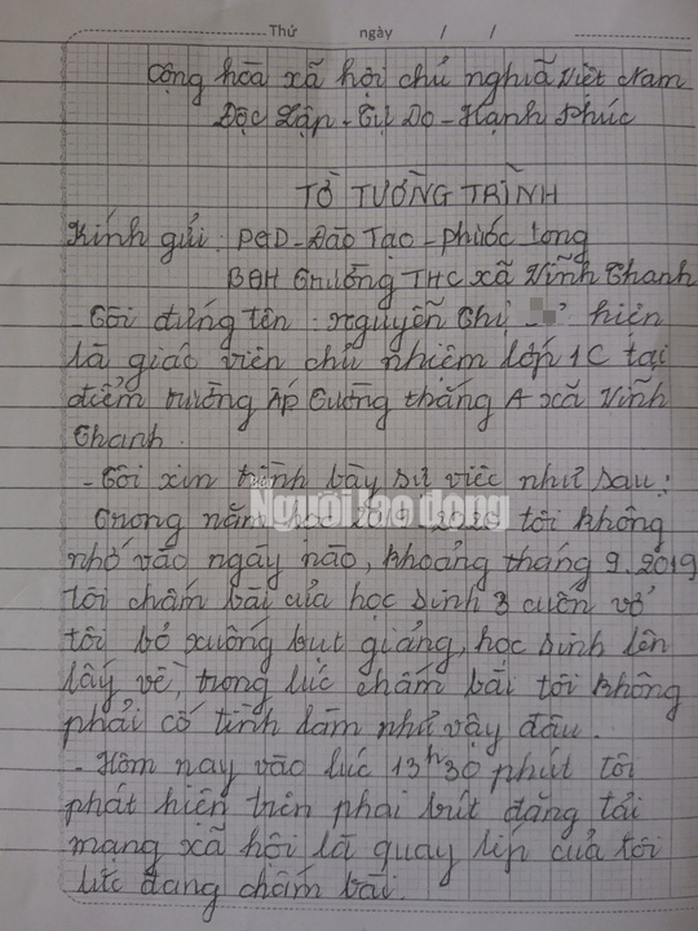 Thứ ngày / /
Cộng hòa xã hội chủ nghĩa Việt Nam
Độc Lập - Tự Do - Hạnh Phúc
TỜ TƯỜNG TRÌNH
Kính gửi: PGD - Đào Tạo - Phước Long
BGH Trường THC xã Vĩnh Thanh
- Tôi đứng tên: Nguyễn Thị hiện
là giáo viên chủ nhiệm lớp 1C tại
điểm trường Ấp Tường thắng A xã Vĩnh
Thanh.
- Tôi xin trình bày sự việc như sau:
Người lao động
Trong năm học 2019 2020 tôi không
nhớ vào ngày nào, khoảng tháng 9.2019
tôi chấm bài của học sinh 3 cuốn vở
tôi bỏ xuống bục giảng, học sinh lên
lấy về, trong lúc chấm bài tôi không
phải cố tình làm như vậy đâu.
- Hôm nay vào lúc 13h30 phút tôi
phát hiện trên phai bút đăng tải
mạng xã hội là quay líp của tôi
lúc đang chấm bài.